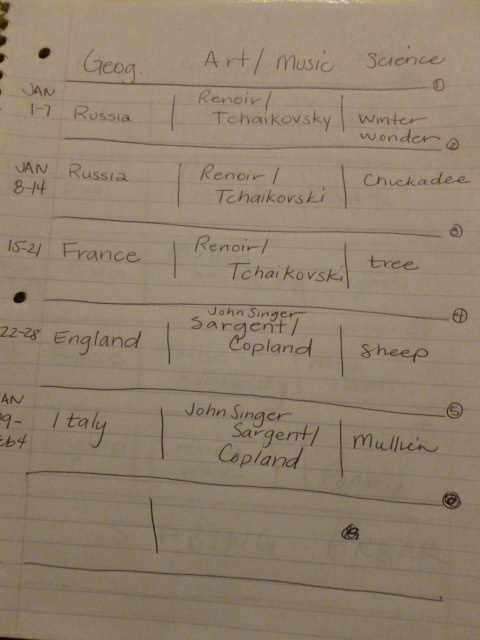 Geog. Art/Music Science
①
JAN
1-7
Russia
Renoir/
Tchaikovsky
Winter
wonder
②
JAN
8-14
Russia
Renoir/
Tchaikovski
Chickadee
③
15-21
France
Renoir/
Tchaikovski
tree
④
22-28
England
John Singer
Sargent/
Copland
Sheep
⑤
AN
9-
eb4
Italy
John Singer
Sargent/
Copland
Mullein
SPRING BREAK